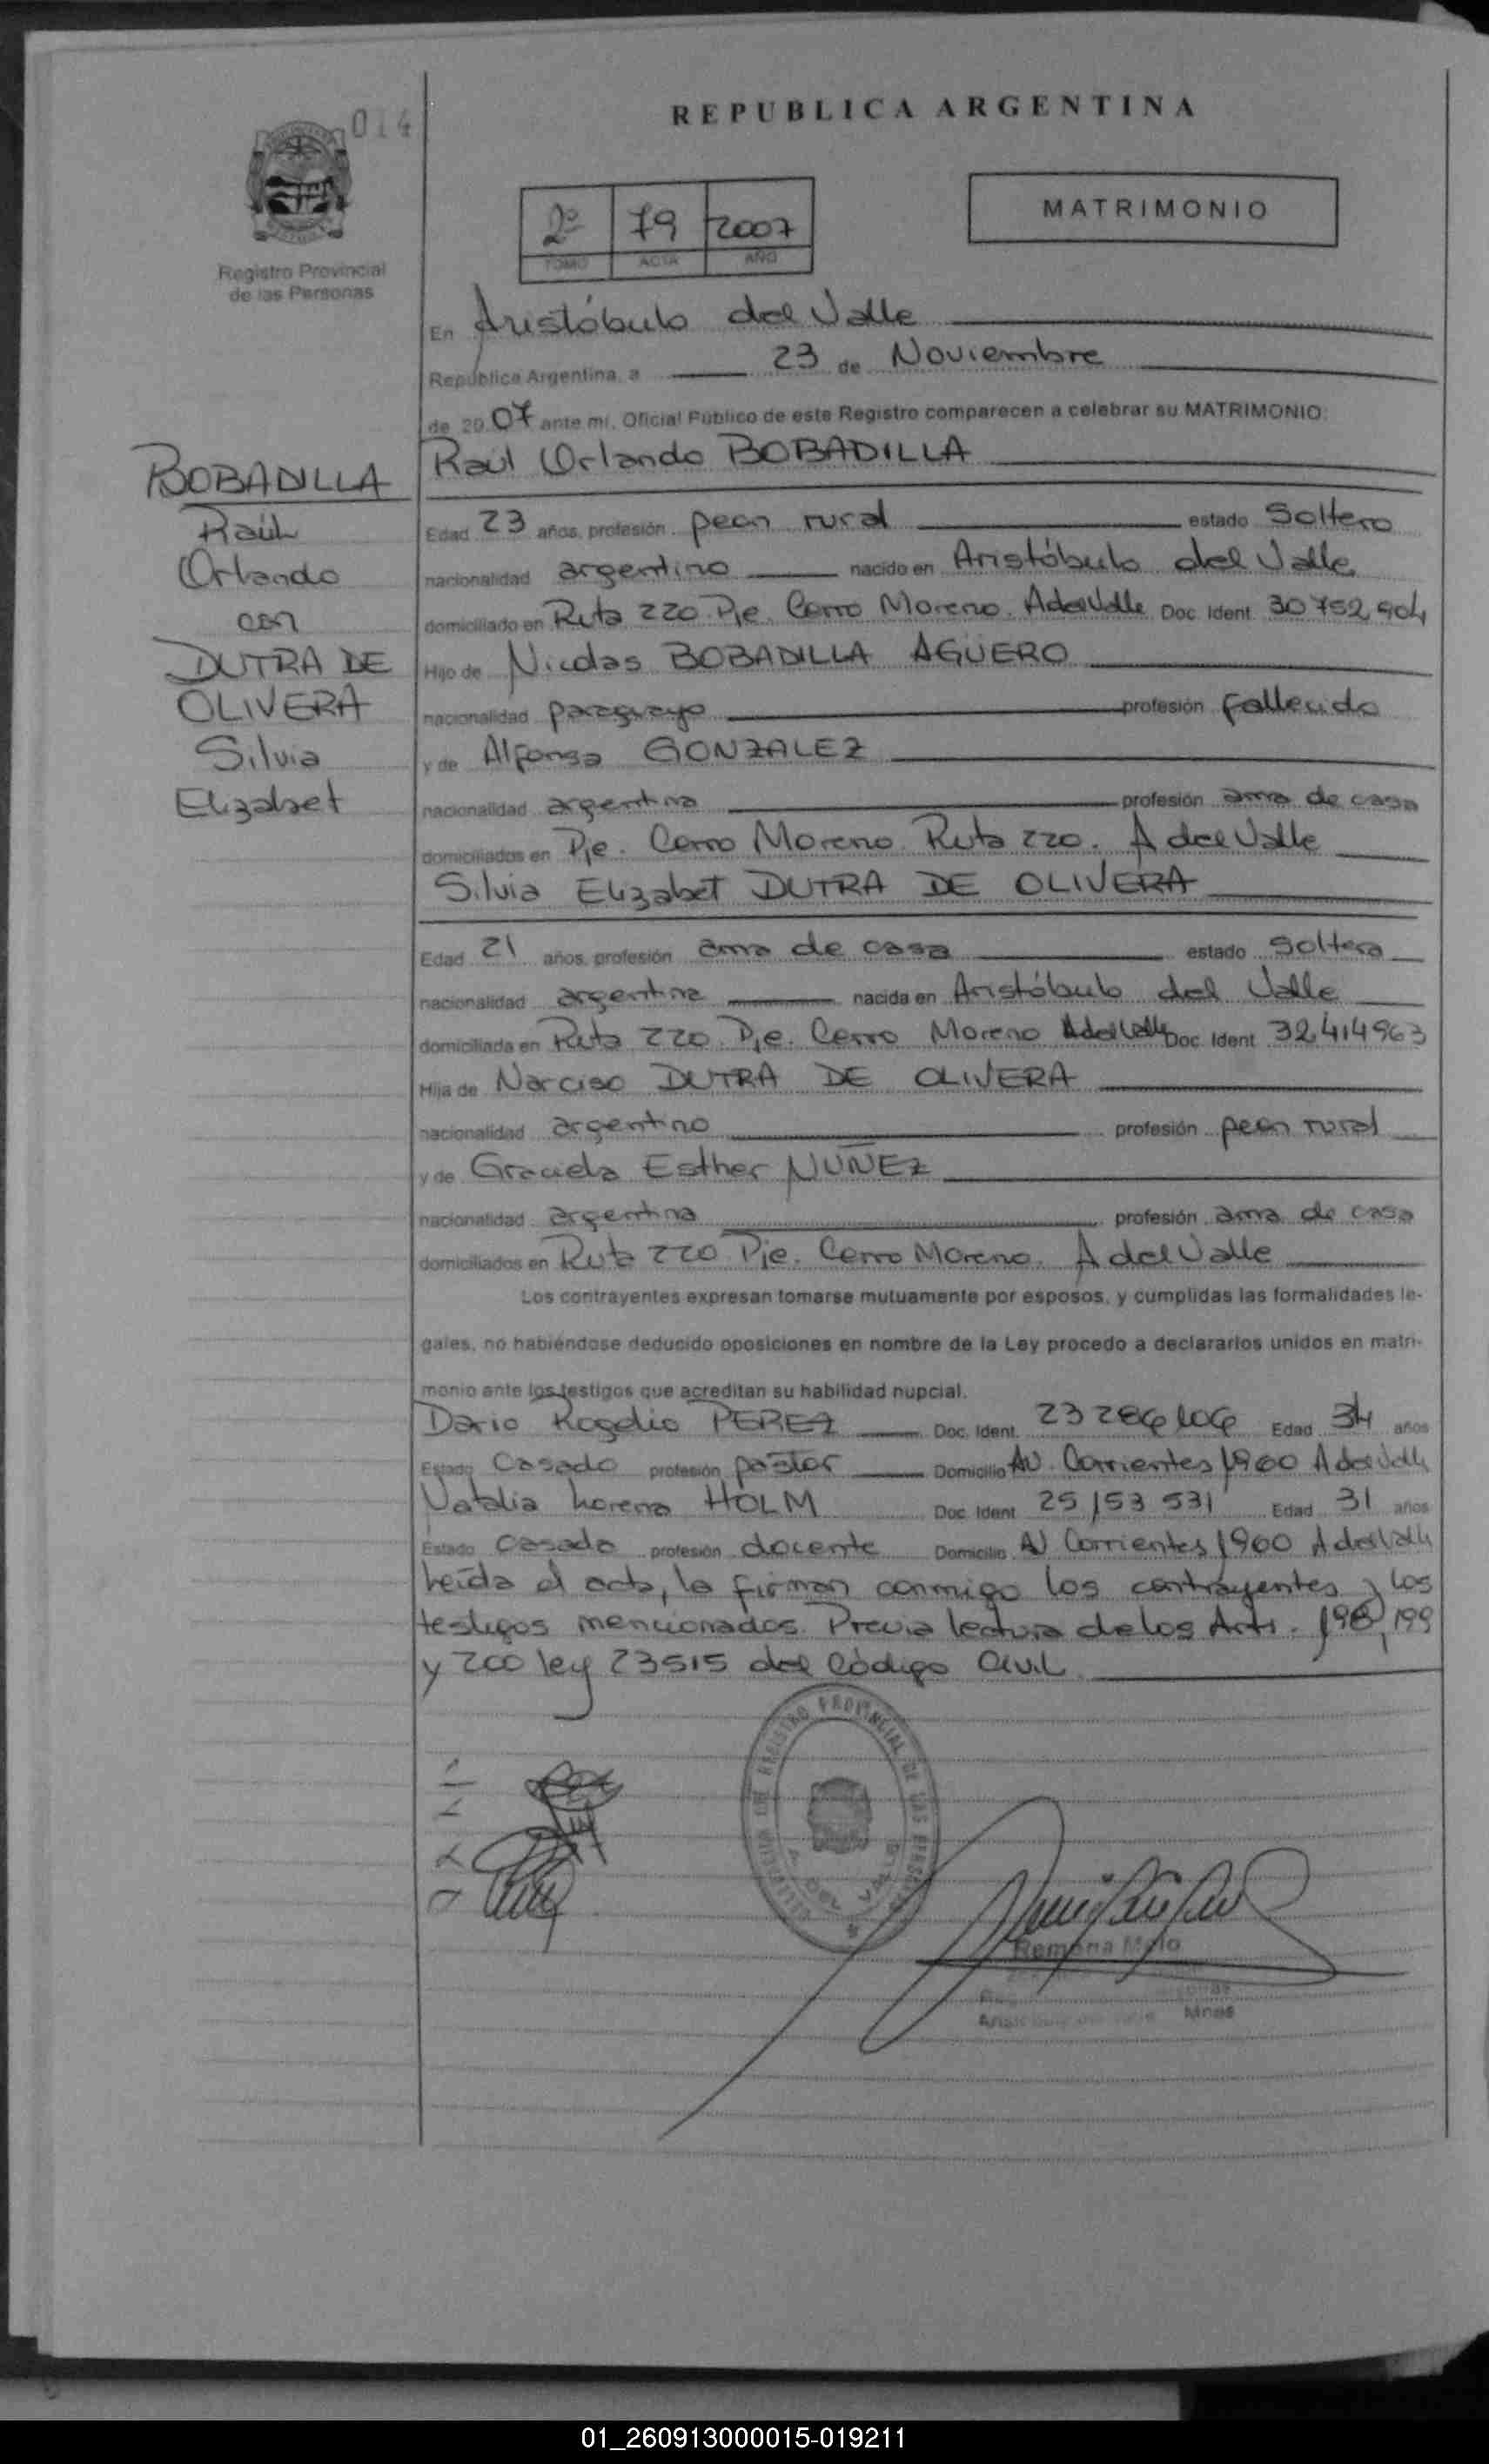 014
REPUBLICA ARGENTINA
2º 79 2007
TOMO ACTA AÑO
MATRIMONIO
Registro Provincial
de las Personas
En Aristóbulo del Valle
República Argentina, a 23 de Noviembre
de 2007 ante mi, Oficial Público de este Registro comparecen a celebrar su MATRIMONIO:
Raúl Orlando BOBADILLA
BOBADILLA
Raúl
Orlando
con
DUTRA DE
OLIVERA
Silvia
Elizabet
Edad 23 años, profesión peon rural estado Soltero
nacionalidad argentino nacido en Aristóbulo del Valle
domiciliado en Ruta 220 Pje. Cerro Moreno. A del Valle Doc. Ident. 30752904
Hijo de Nicolas BOBADILLA AGÜERO
nacionalidad paraguayo profesión fallecido
y de Alfonsa GONZALEZ
nacionalidad argentina profesión ama de casa
domiciliados en Pje. Cerro Moreno Ruta 220. A del Valle
Silvia Elizabet DUTRA DE OLIVERA
Edad 21 años, profesión ama de casa estado Soltera
nacionalidad argentina nacida en Aristóbulo del Valle
domiciliada en Ruta 220 Pje. Cerro Moreno A del Valle Doc. Ident. 32414963
Hija de Narciso DUTRA DE OLIVERA
nacionalidad argentino profesión peon rural
y de Graciela Esther NUÑEZ
nacionalidad argentina profesión ama de casa
domiciliados en Ruta 220 Pje. Cerro Moreno. A del Valle
Los contrayentes expresan tomarse mutuamente por esposos, y cumplidas las formalidades le-
gales, no habiéndose deducido oposiciones en nombre de la Ley procedo a declararlos unidos en matri-
monio ante los testigos que acreditan su habilidad nupcial.
Dario Rogelio PEREZ Doc. Ident. Edad 34 años
Estado Casado profesión pastor Domicilio Av. Corrientes 1960 A del Valle
Natalia Lorena HOLM Doc. Ident. 25153531 Edad 31 años
Estado Casada profesión docente Domicilio Av Corrientes 1960 A del Valle
Leída el acta, la firman conmigo los contrayentes y los
testigos mencionados. Previa lectura de los Arts. 198, 199
y 200 ley 23515 del Código Civil
REGISTRO PROVINCIAL DE LAS PERSONAS
A. DEL VALLE
Ramona Melo
Mnes
01_260913000015-019211